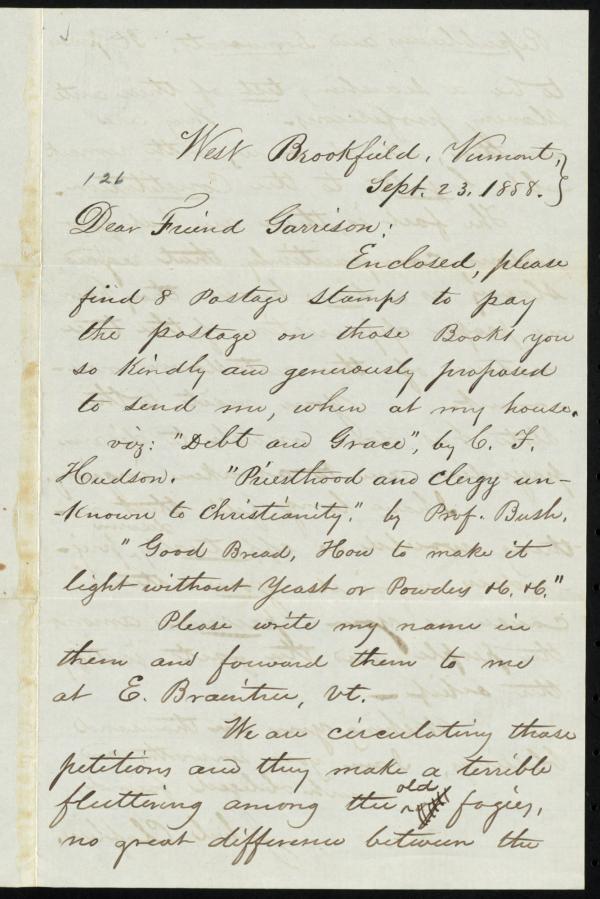 West Brookfield, Vermont,
126
Sept. 23. 1858.
Dear Friend Garrison:
Enclosed, please
find 8 Postage Stamps to pay
the postage on those Books you
so kindly and generously proposed
to send me, when at my house.
viz: "Debt and Grace", by C. F.
Hudson. "Priesthood and Clergy un-
-known to Christianity." by Prof. Bush.
"Good Bread, How to make it
light without Yeast or Powders &c. &c."
Please write my name in
them and forward them to me
at E. Braintree, Vt.
We are circulating those
petitions and they make a terrible
fluttering among the old fogies,
no great difference between the